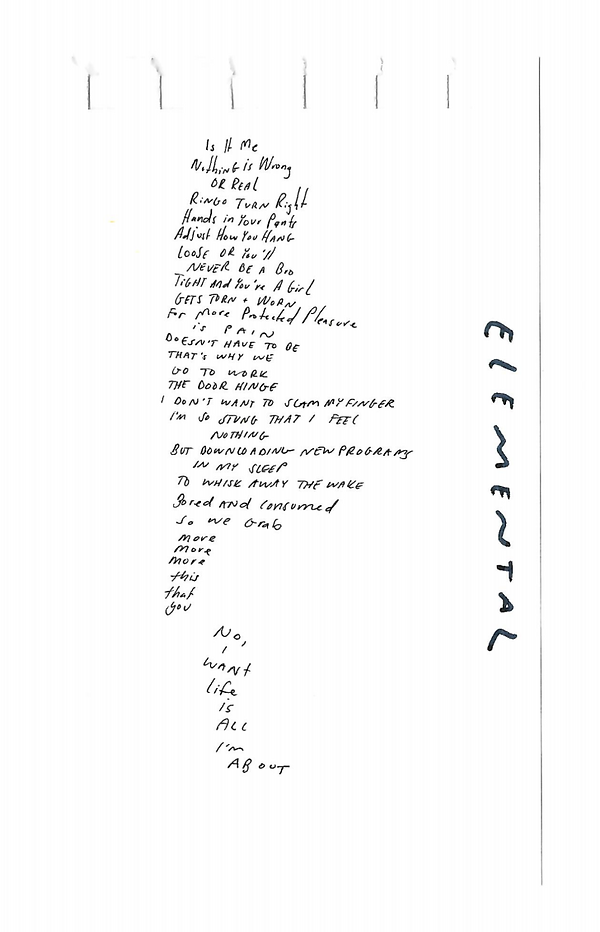 Is It Me
Nothing is Wrong
OR REAL
RINGO TURN Right
Hands in Your Pants
Adjust How You HANG
LOOSE OR You'll
NEVER BE A Bro
TIGHT And You're A Girl
GETS TORN + WORN
For More Protected Pleasure
is PAIN
DOESN'T HAVE TO BE
THAT'S WHY WE
GO TO WORK
THE DOOR HINGE
I DON'T WANT TO SLAM MY FINGER
I'm SO STUNG THAT I FEEL
NOTHING
BUT DOWNLOADING NEW PROGRAMS
IN MY SLEEP
TO WHISK AWAY THE WAKE
Bored AND Consumed
So we Grab
more
more
more
this
that
you
No,
I
WANt
life
is
ALL
I'm
ABOUT
ELEMENTAL